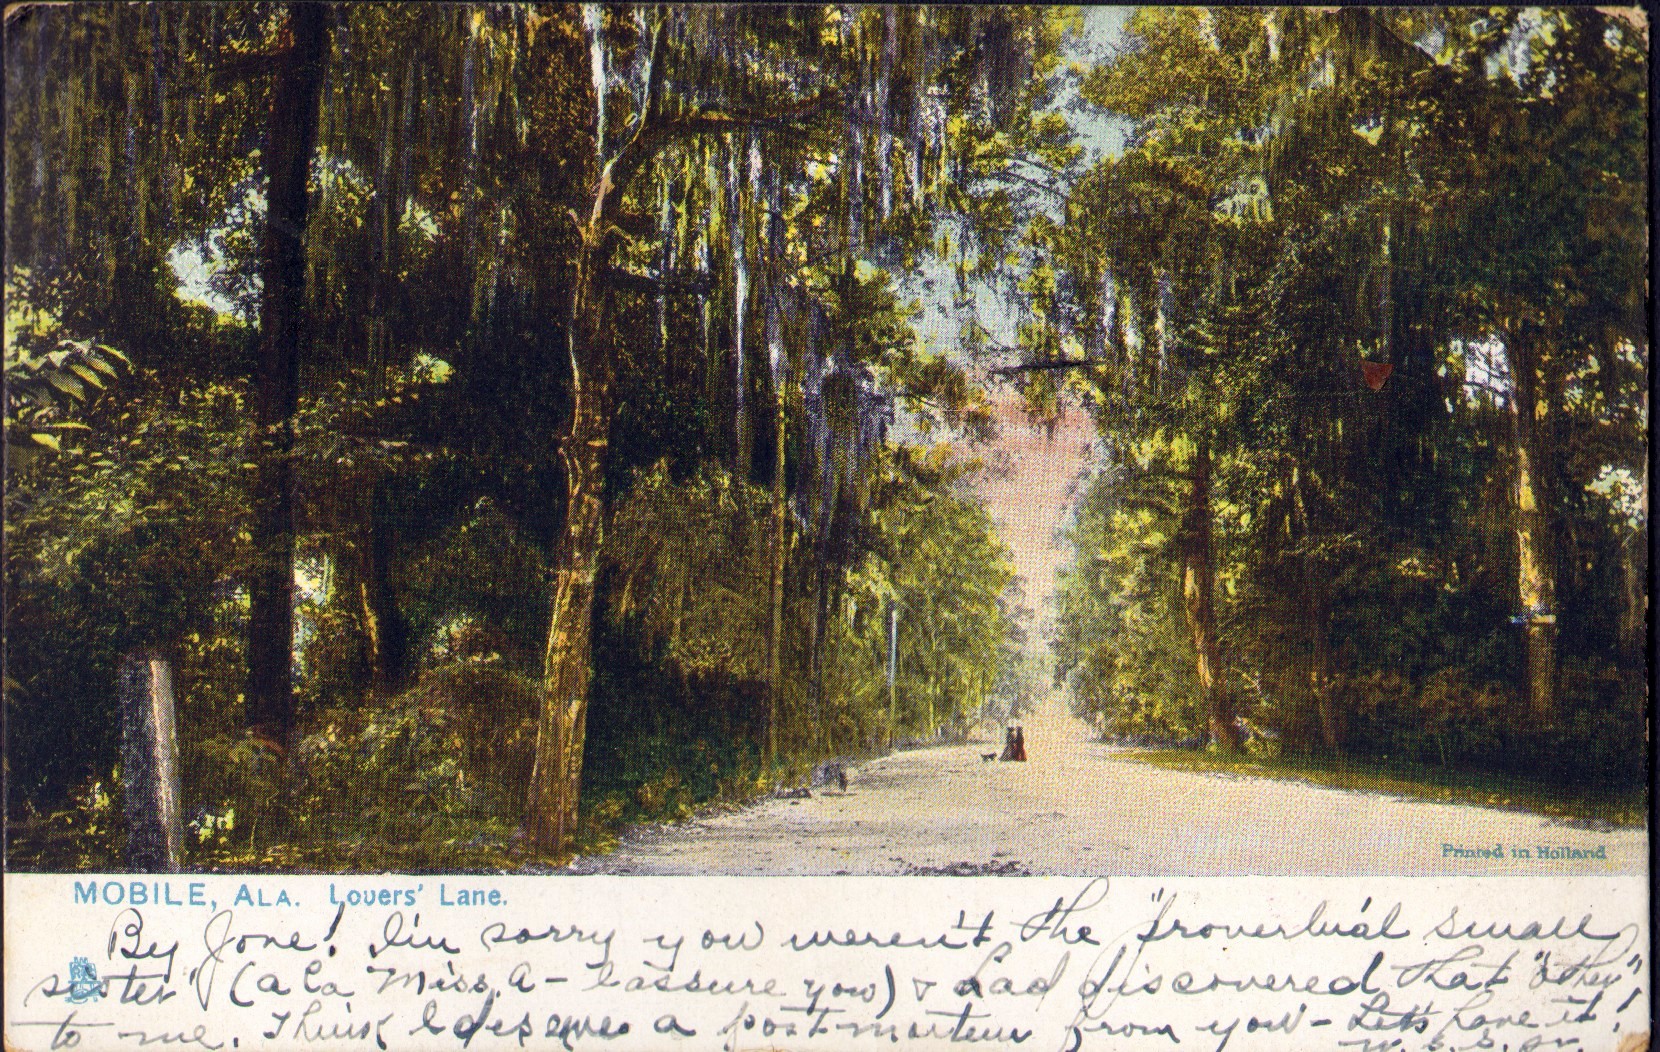 Printed in Holland
MOBILE, ALA. Lovers' Lane.
By Jove! I'm sorry you weren't the "proverbial small
sister" (a la Miss A - I assure you) & had discovered that "other"
to me. Think I deserve a post mortem from you - Let's have it!